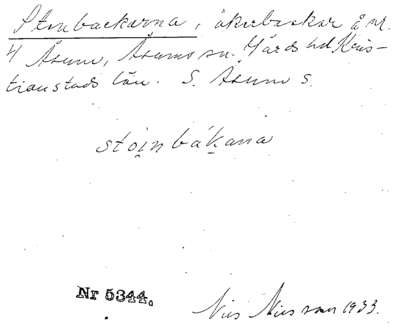 Stenbackarna, åkerbackar å nr.
4 Åsum, Åsums sn. Gärds hd. Kris-
tianstads län. S. Åsum s.
stoinbákana
Nr 5344.
Nils Nilsson 1933.